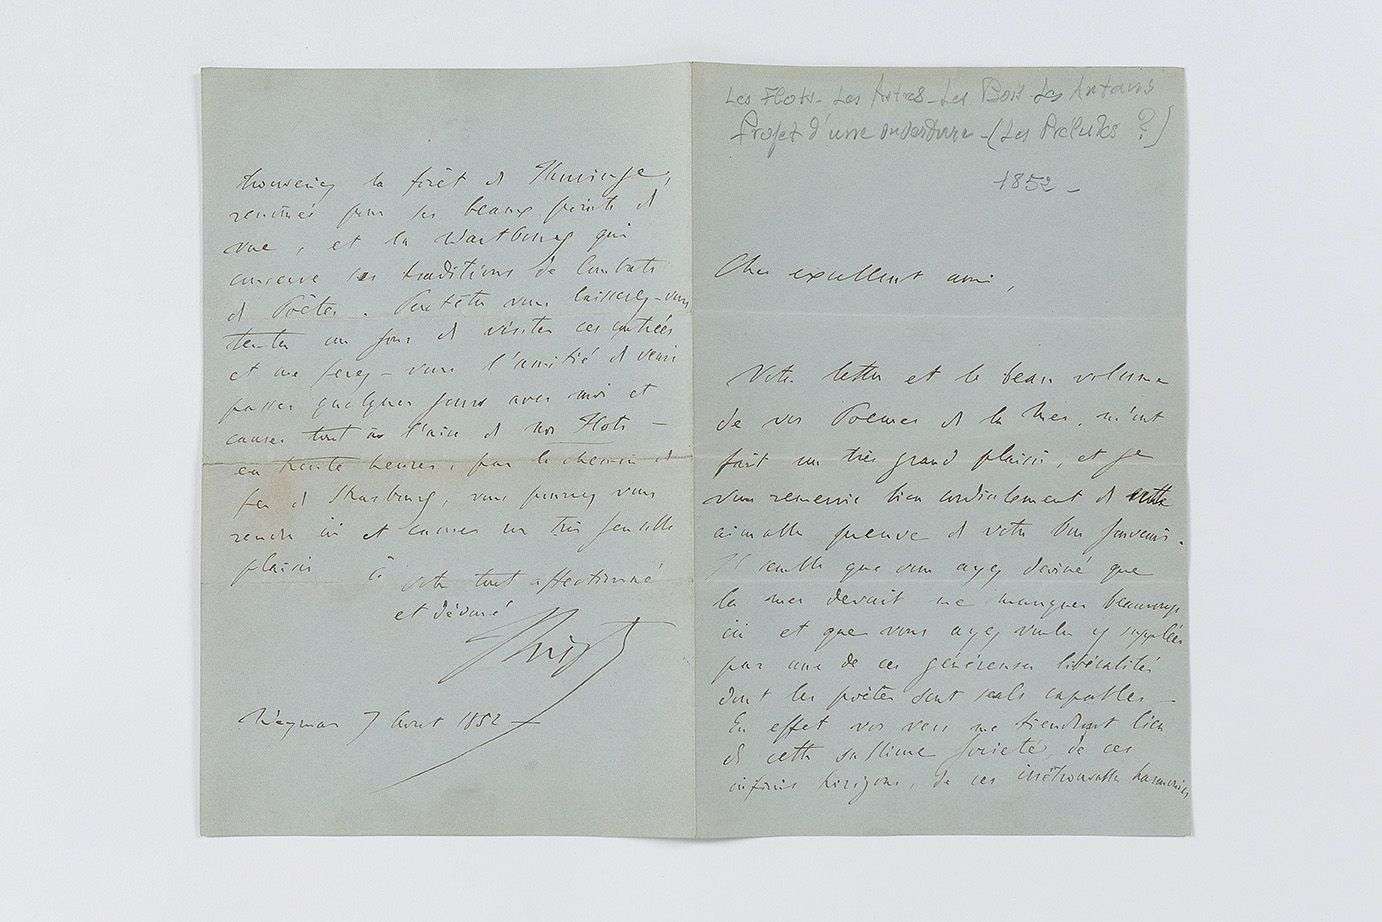 Les Flots - Les Astres - Les Bois Les Autans
Projet d'une ouverture - (Les Preludes ?)
1852 -
Cher excellent ami,
Votre lettre et le beau volume
de vos Poemes de la Mer, m'ont
fait un très grand plaisir, et je
vous remercie bien cordialement de cette
aimable preuve de votre bon souvenir.
Il semble que vous ayez deviné que
la mer devait me manquer beaucoup
ici et que vous ayez voulu y suppléer
par une de ces généreuses libéralités
dont les poètes sont seuls capables -
En effet vos vers me tiendront lieu
de cette sublime société de ces
infinis horizons, de ces harmonies
trouverez la forêt de Thuringe,
renommée pour ses beaux points de
vue, et la Wartbourg qui
conserve les traditions de Combats
de Poètes. Peutêtre vous laisserez-vous
tenter un jour de visiter ces contrées
et me ferez-vous l'amitié de venir
passer quelques jours avec moi et
causer tout à l'aise de nos Flots -
en trente heures, par le chemin de
fer de Strasbourg, vous pourrez vous
rendre ici et causer un très sensible
plaisir à
votre tout affectionné
et dévoué
FLiszt
Weymar 7 Aout 1852 -